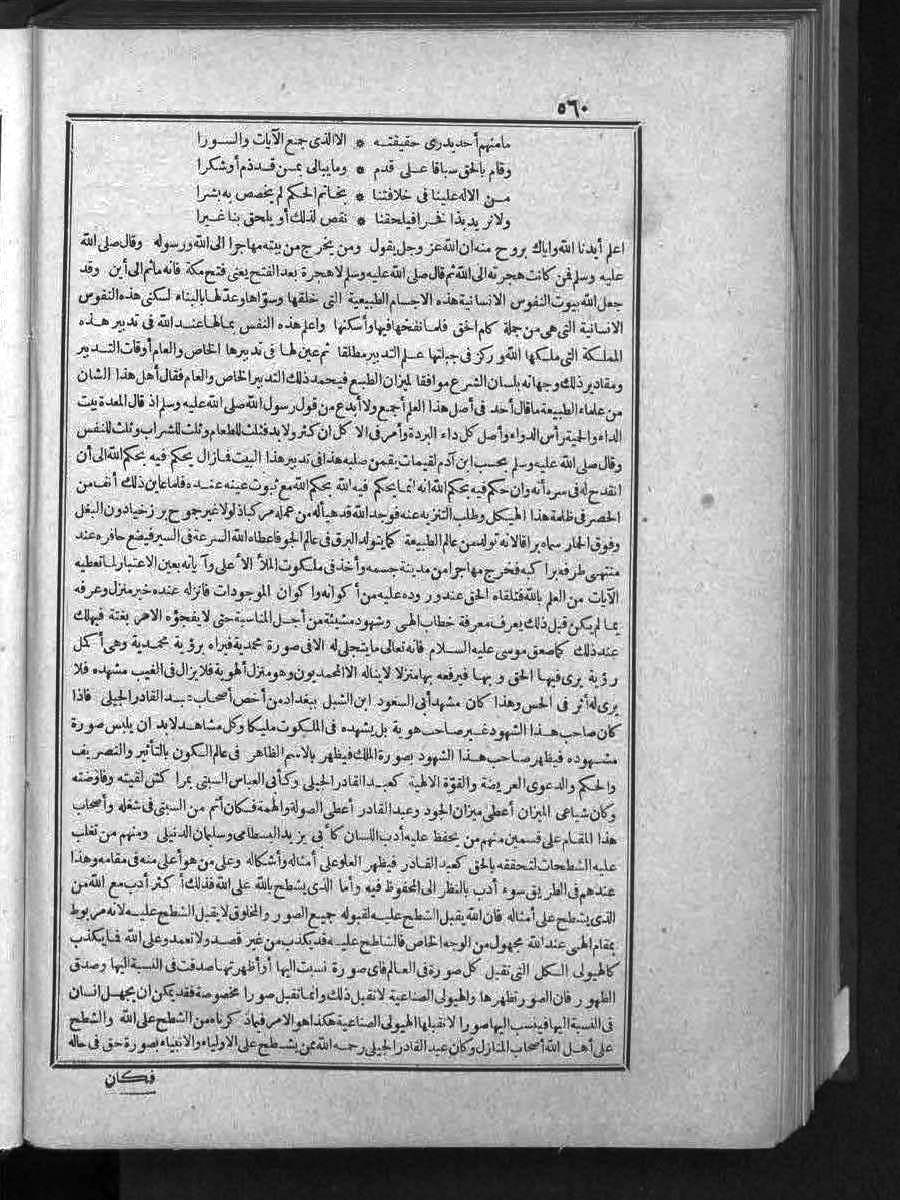 ٥٦٠
مامنهم أحد يدرى حقيقته * الا الذى جمع الآيات والسورا
وقام بالحق سباقا على قدم * وما يبالى بمن قد ذم أو شكرا
من الاله علينا فى خلافتنا * بخاتم الحكم لم يخصص به بشرا
ولا نريد بذا فخرا فيلحقنا * نقص لذلك أو يلحق بنا غيرا
اعلم أيدنا الله واياك بروح منه ان الله عز وجل يقول ومن يخرج من بيته مهاجرا الى الله ورسوله وقال صلى الله
عليه وسلم فمن كانت هجرته الى الله ثم قال صلى الله عليه وسلم لا هجرة بعد الفتح يعنى فتح مكة فانه ماثم الى أين وقد
جعل الله بيوت النفوس الانسانية هذه الاجسام الطبيعية التى خلقها وسوّاها وعدّلها بالبناء لسكنى هذه النفوس
الانسانية التى هى من جملة كلم الحق فلما نفخها فيها وأسكنها واعلم هذه النفس بمالها عند الله فى تدبير هذه
المملكة التى ملكها الله وركز فى جبلتها علم التدبير مطلقا ثم عين لها فى تدبيرها الخاص والعام أوقات التدبير
ومقادير ذلك وجهاته بلسان الشرع موافقا لميزان الطبع فيحمد ذلك التدبير الخاص والعام فقال أهل هذا الشان
من علماء الطبيعة ما قال أحد فى أصل هذا العلم أجمع ولا أبدع من قول رسول الله صلى الله عليه وسلم اذ قال المعدة بيت
الداء والحمية رأس الدواء وأصل كل داء البردة وأمر فى الاكل ان كثر ولا بد فثلث للطعام وثلث للشراب وثلث للنفس
وقال صلى الله عليه وسلم بحسب ابن آدم لقيمات يقمن صلبه هذا فى تدبير هذا البيت فمازال يحكم فيه بحكم الله الى أن
انقدح له فى سره أنه وان حكم فيه بحكم الله انه انما يحكم فيه الله بحكم الله مع ثبوت عينه عنده فلما عاين ذلك أنف من
الحصر فى ظلمة هذا الهيكل وطلب التنزيه عنه فوجد الله قد هيأ له من عمله مركبا ذلولا غير جموح برزخيا دون البغل
وفوق الحمار سماه براقا لانه تولد من عالم الطبيعة كما يتولد البرق فى عالم الجو فاعطاه الله السرعة فى السير فيضع حافره عند
منتهى طرفه براكبه فخرج مهاجرا من مدينة جسمه وأخذ فى ملكوت الملأ الأعلى وآياته بعين الاعتبار لما تعطيه
الآيات من العلم بالله فتلقاه الحق عند وروده عليه من أكوانه واكوان الموجودات فانزله عنده خير منزل وعرفه
بما لم يكن قبل ذلك يعرف معرفة خطاب الهى وشهود مشيئة من أجل المناسبة حتى لا يفجؤه الامر بغتة فيهلك
عند ذلك كما صعق موسى عليه السلام فانه تعالى ما يتجلى له الا فى صورة محمدية فيراه برؤية محمدية وهى أكمل
رؤية يرى فيها الحق وبها فيرفعه بها منزلا لا يناله الا المحمديون وهو منزل الهوية فلا يزال فى الغيب مشهده فلا
يرى له أثر فى الحس وهذا كان مشهد أبى السعود ابن الشبل ببغداد من أخص أصحاب عبد القادر الجيلى فاذا
كان صاحب هذا الشهود غير صاحب هوية بل يشهده فى الملكوت مليكا وكل مشاهد لابد ان يلبس صورة
مشهوده فيظهر صاحب هذا الشهود بصورة الملك فيظهر بالاسم الظاهر فى عالم الكون بالتأثير والتصريف
والحكم والدعوى العريضة والقوّة الالهية كعبد القادر الجيلى وكأبى العباس السبتى بمراكش لقيته وفاوضته
وكان شياعى الميزان أعطى ميزان الجود وعبد القادر أعطى الصولة والهمة فكان أتم من السبتى فى شغله وأصحاب
هذا المقام على قسمين منهم من يحفظ عليه أدب اللسان كأبى يزيد البسطامى وسليمان الدنبلى ومنهم من تغلب
عليه الشطحات لتحققه بالحق كعبد القادر فيظهر العلو على أمثاله وأشكاله وعلى من هو أعلى منه فى مقامه وهذا
عندهم فى الطريق سوء أدب بالنظر الى المحفوظ فيه وأما الذى يشطح بالله على الله فذلك أكثر أدب مع الله من
الذى يشطح على أمثاله فان الله يقبل الشطح عليه لقبوله جميع الصور والمخلوق لا يقبل الشطح عليه لانه مربوط
بمقام الهى عند الله مجهول من الوجه الخاص فالشاطح عليه قد يكذب من غير قصد ولا تعمد وعلى الله فما يكذب
كالهيولى الكل التى تقبل كل صورة فى العالم فأى صورة نسبت اليها أو أظهرتها صدقت فى النسبة اليها وصدق
الظهور فان الصور تظهرها والهيولى الصناعية لا تقبل ذلك وانما تقبل صورا مخصوصة فقد يمكن ان يجهل انسان
فى النسبة اليها فينسب اليها صورا لا تقبلها الهيولى الصناعية هكذا هو الامر فيما ذكرناه من الشطح على الله والشطح
على أهل الله أصحاب المنازل وكان عبد القادر الجيلى رحمه الله ممن يشطح على الاولياء والانبياء بصورة حق فى حاله
فكان